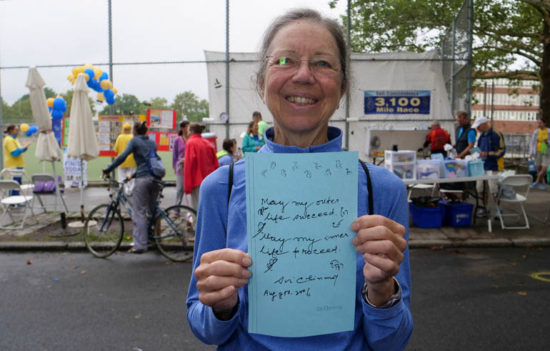 Self-Transcendence
3,100
Mile Race
May my outer
life succeed.
May my inner
life proceed.
Sri Chinmoy